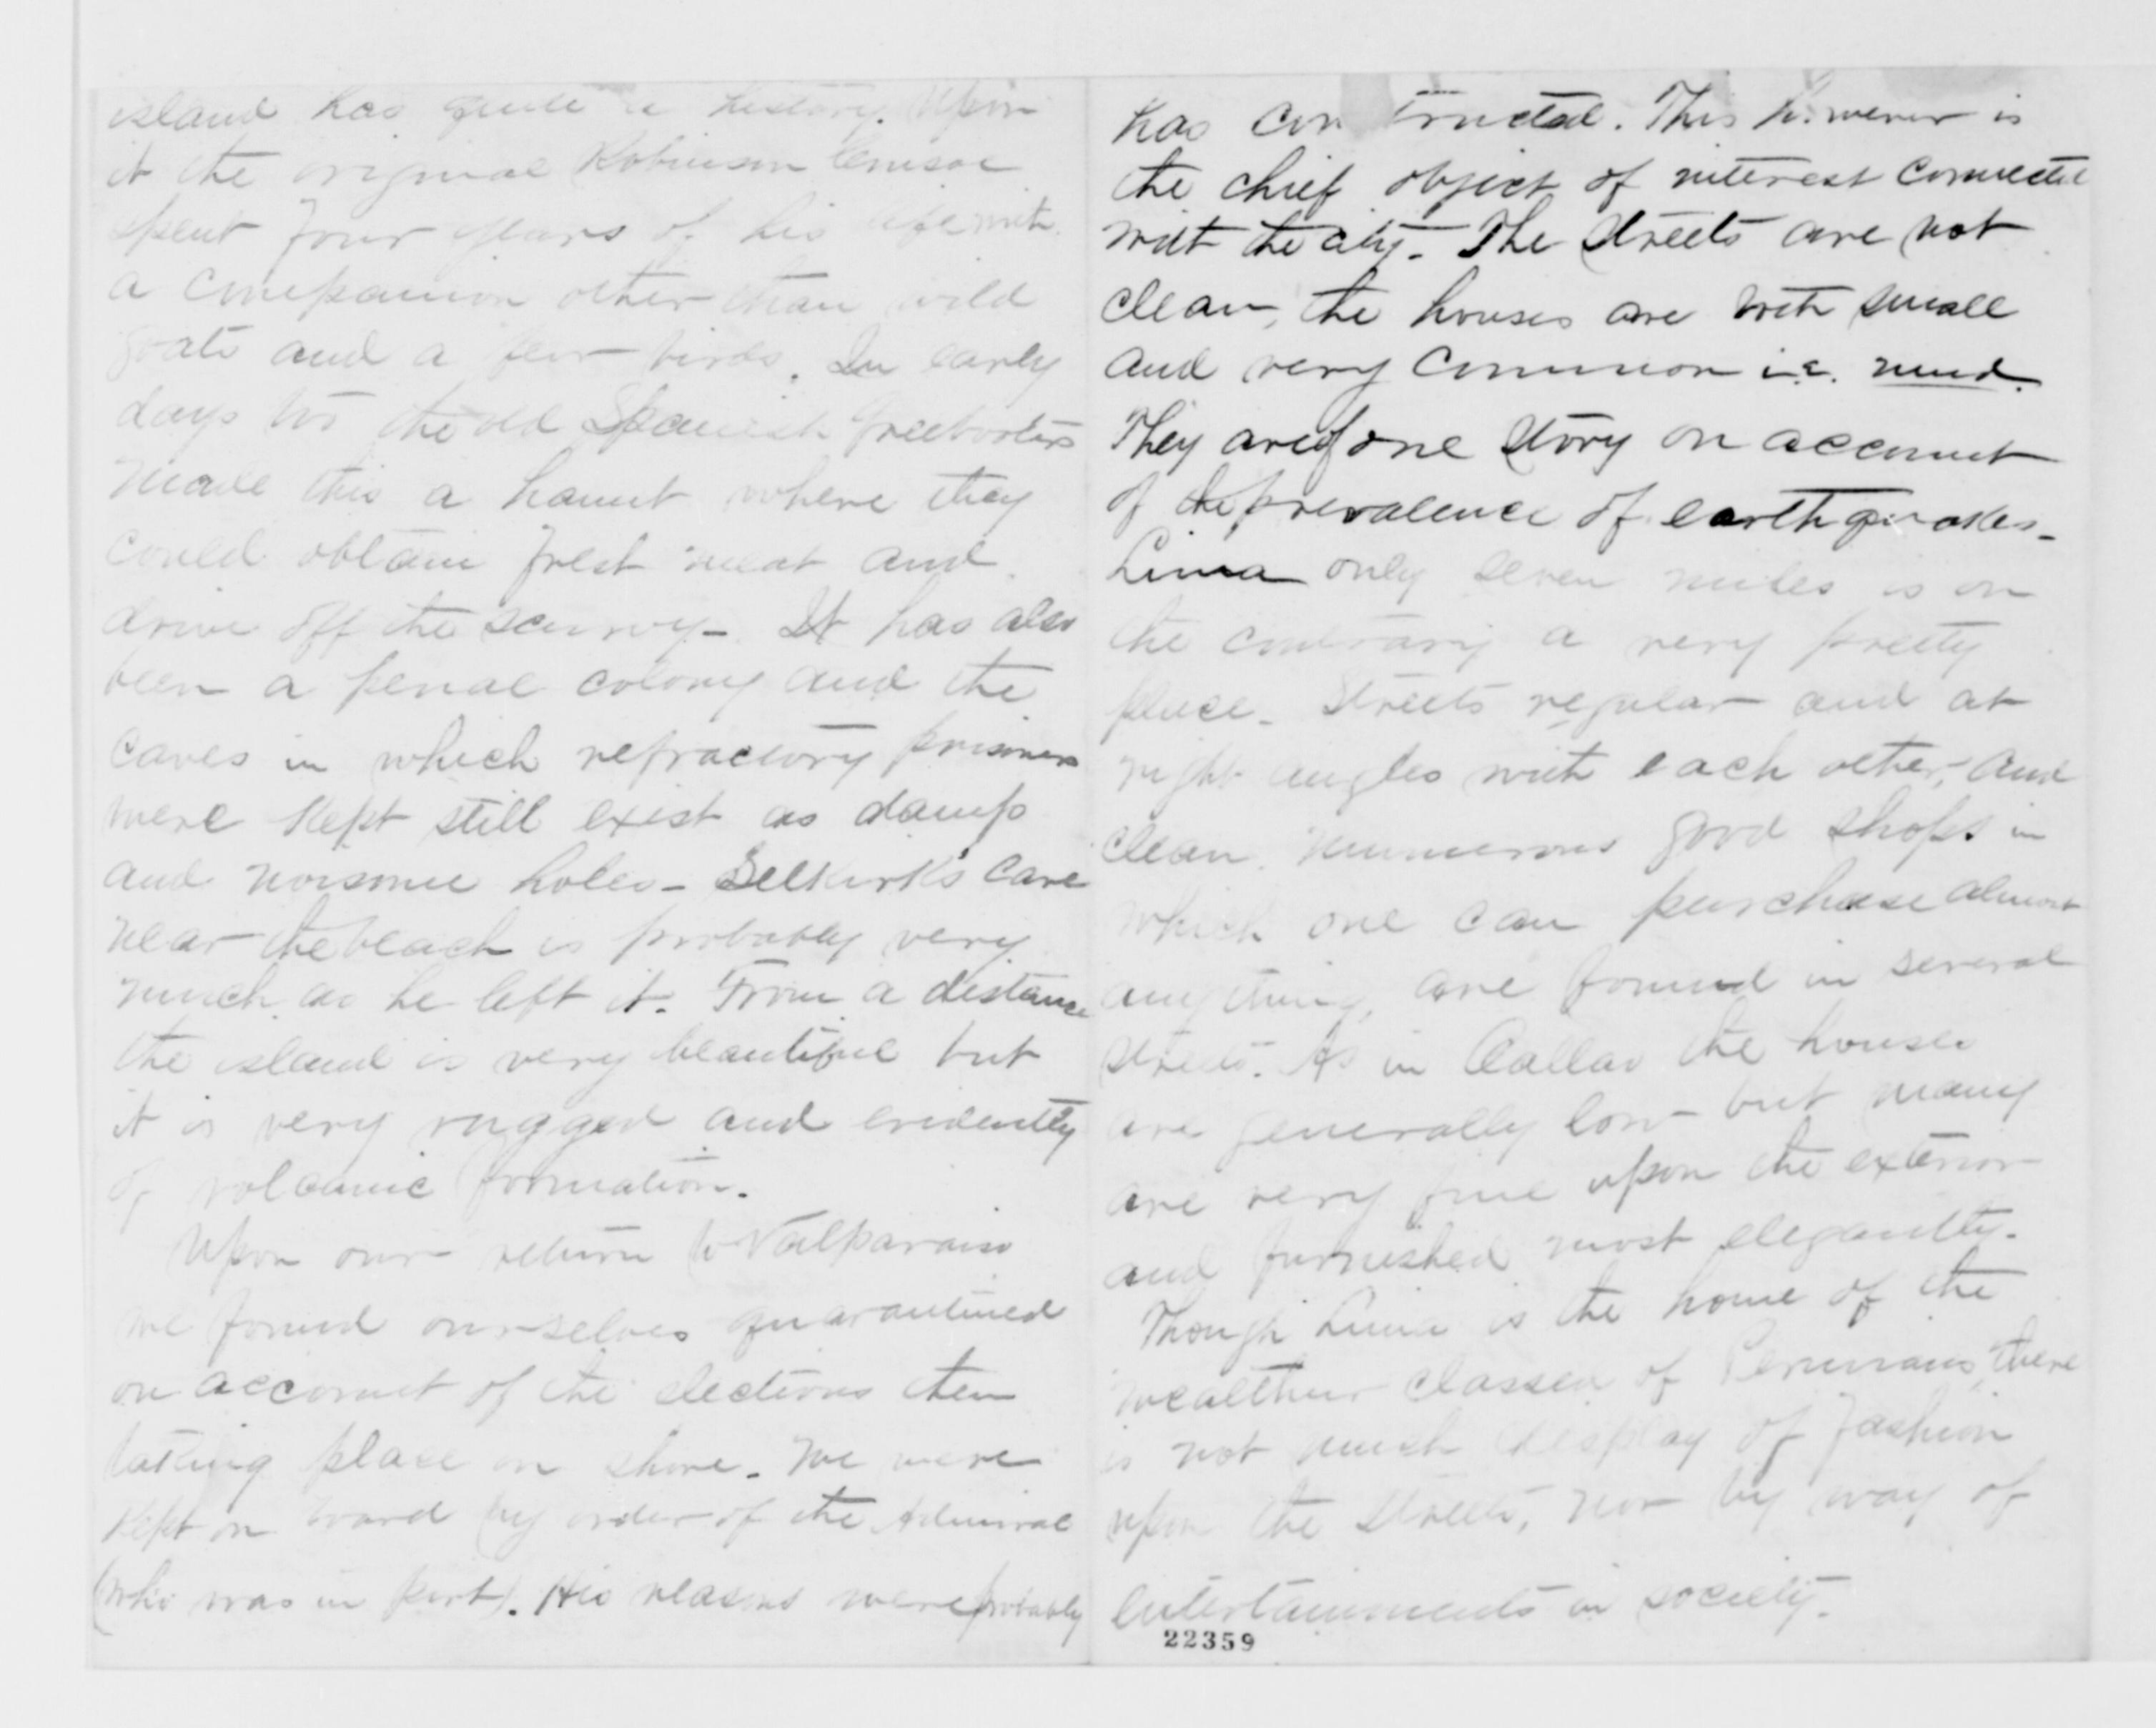 island has quite a history. Upon
it the original Robinson Crusoe
spent four years of his life with
a companion other than wild
goats and a few birds. In early
days too the old Spanish freebooters
made this a haunt where they
could obtain fresh meat and
drive off the scurvy - It has also
been a penal colony and the
caves in which refractory prisoners
were kept still exist as damp
and noisome holes - Selkirk's cave
near the beach is probably very
much as he left it. From a distance
the island is very beautiful but
it is very rugged and evidently
of volcanic formation.
Upon our return to Valparaiso
we found ourselves quarantined
on account of the elections then
taking place on shore. We were
kept on board by order of the Admiral
(who was in port). His reasons were probably
has con tructed. This however is
the chief object of interest connected
with the city. The streets are not
clean, the houses are both small
and very common i.e. mud.
They are of one story on account
of the prevalence of earthquakes -
Lima only seven miles is on
the contrary a very pretty
place - Streets regular and at
right angles with each other, and
clean. Numerous good shops in
which one can purchase almost
anything, are found in several
streets. As in Callao the houses
are generally low - but many
are very fine upon the exterior
and furnished most elegantly.
Though Lima is the home of the
wealthier classes of Peruvians, there
is not much display of fashion
upon the streets, nor by way of
entertainments in society.
22359